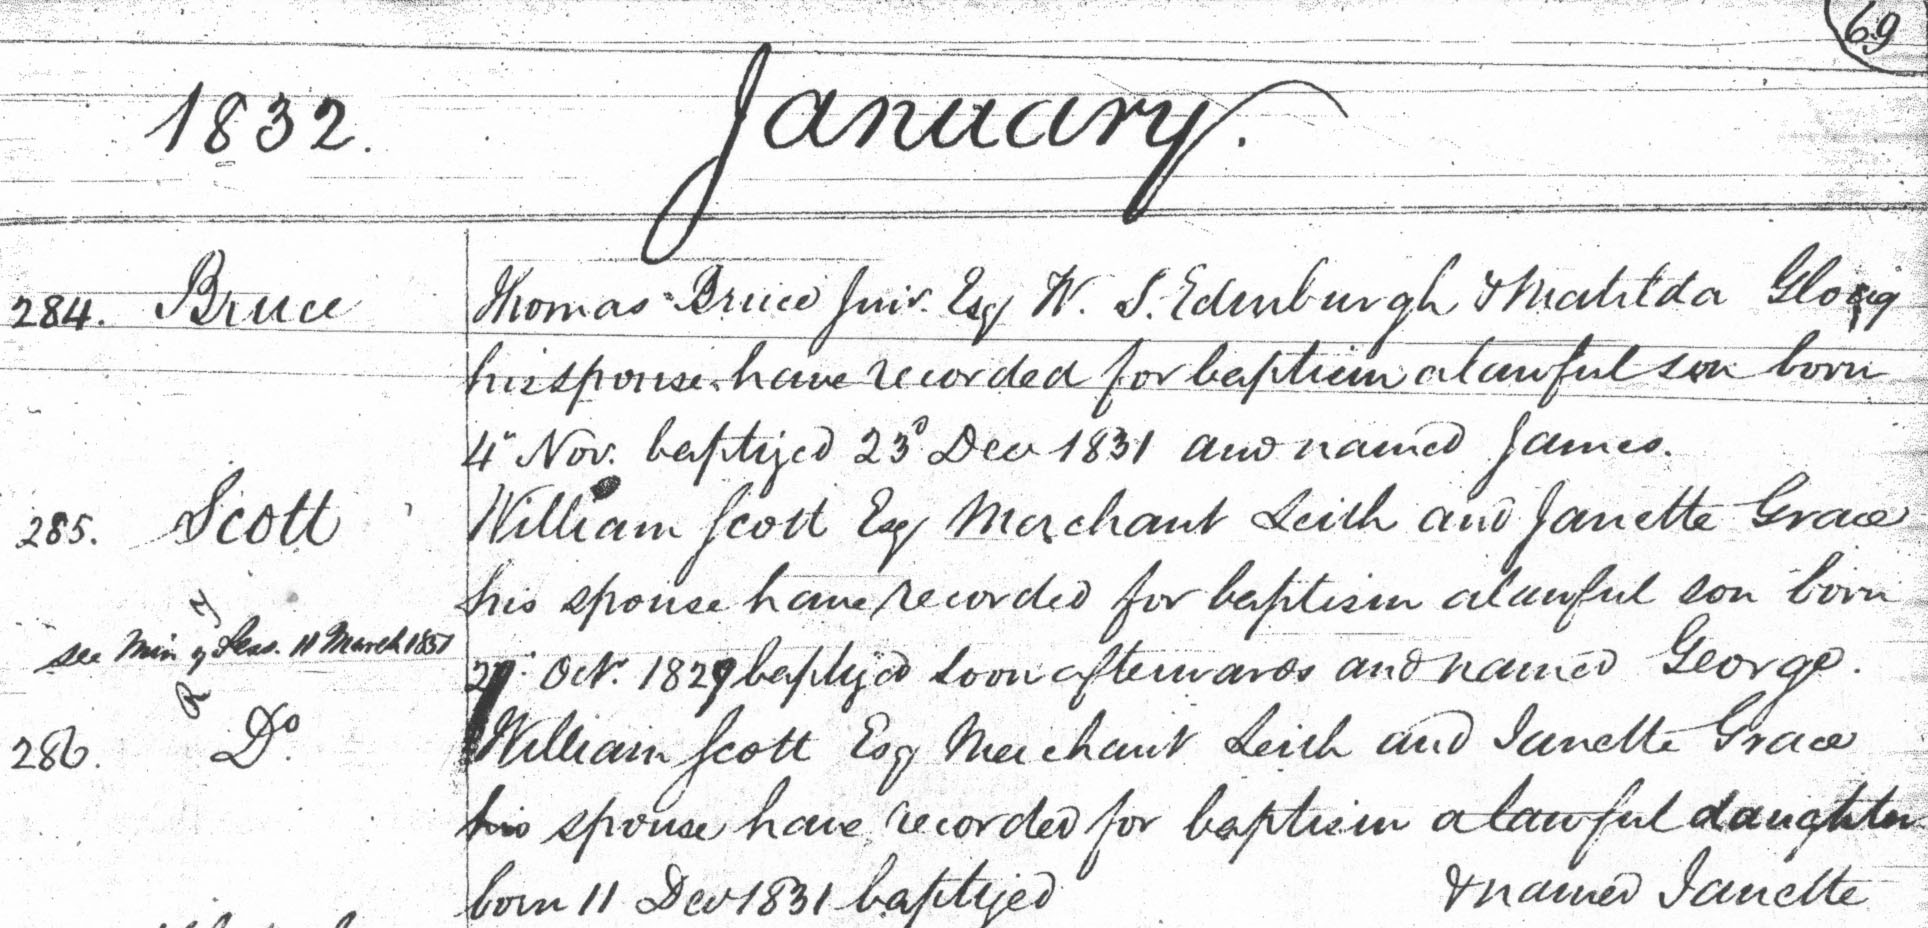 69
1832. January.
284. Bruce Thomas Bruce Junr. Esq W. S. Edinburgh & Matilda
his spouse have recorded for baptism a lawful son born
4th Nov. baptized 23d Dec 1831 and named James.
285. Scott William Scott Esq Merchant Leith and Janette Grace
his spouse have recorded for baptism a lawful son born
see Min of Sess. 11 March 1851
Octr. 1829 baptized soon afterwards and named George.
286. Do. William Scott Esq Merchant Leith and Janette Grace
his spouse have recorded for baptism a lawful daughter
born 11 Dec 1831 baptized & named Janette